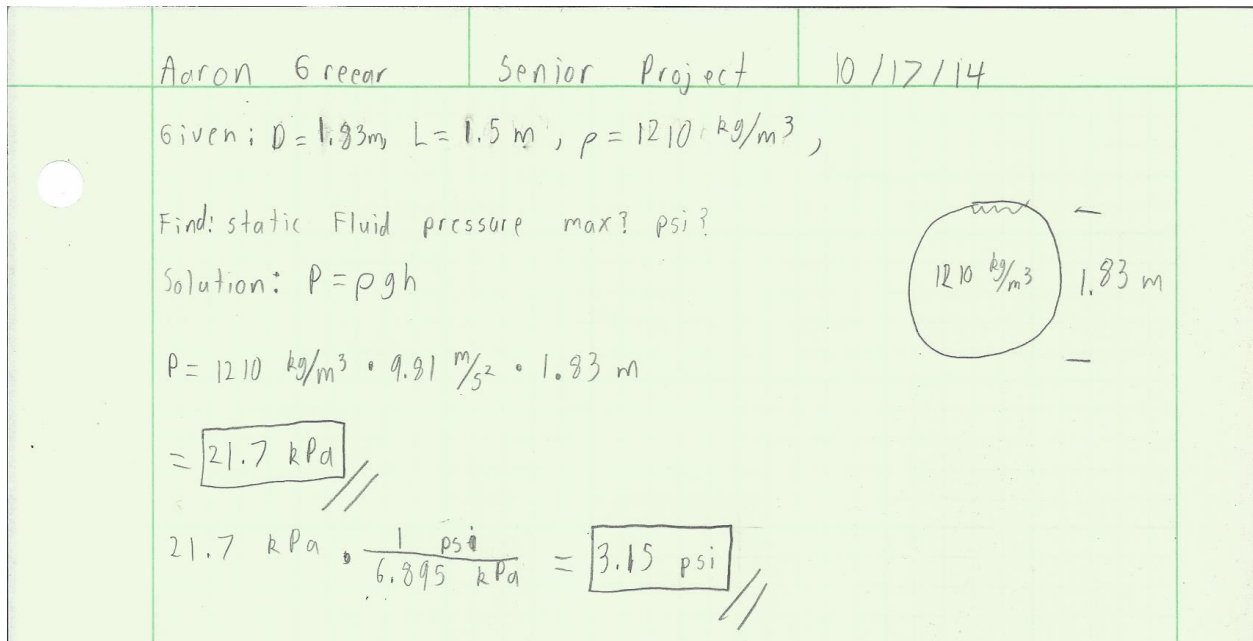 Aaron Greear Senior Project 10/17/14
Given: D = 1.83m, L = 1.5 m, ρ = 1210 kg/m³,
Find: static Fluid pressure max? psi?
Solution: P = ρgh
1210 kg/m³ 1.83 m
P = 1210 kg/m³ • 9.81 m/s² • 1.83 m
= 21.7 kPa
21.7 kPa • 1 psi / 6.895 kPa = 3.15 psi